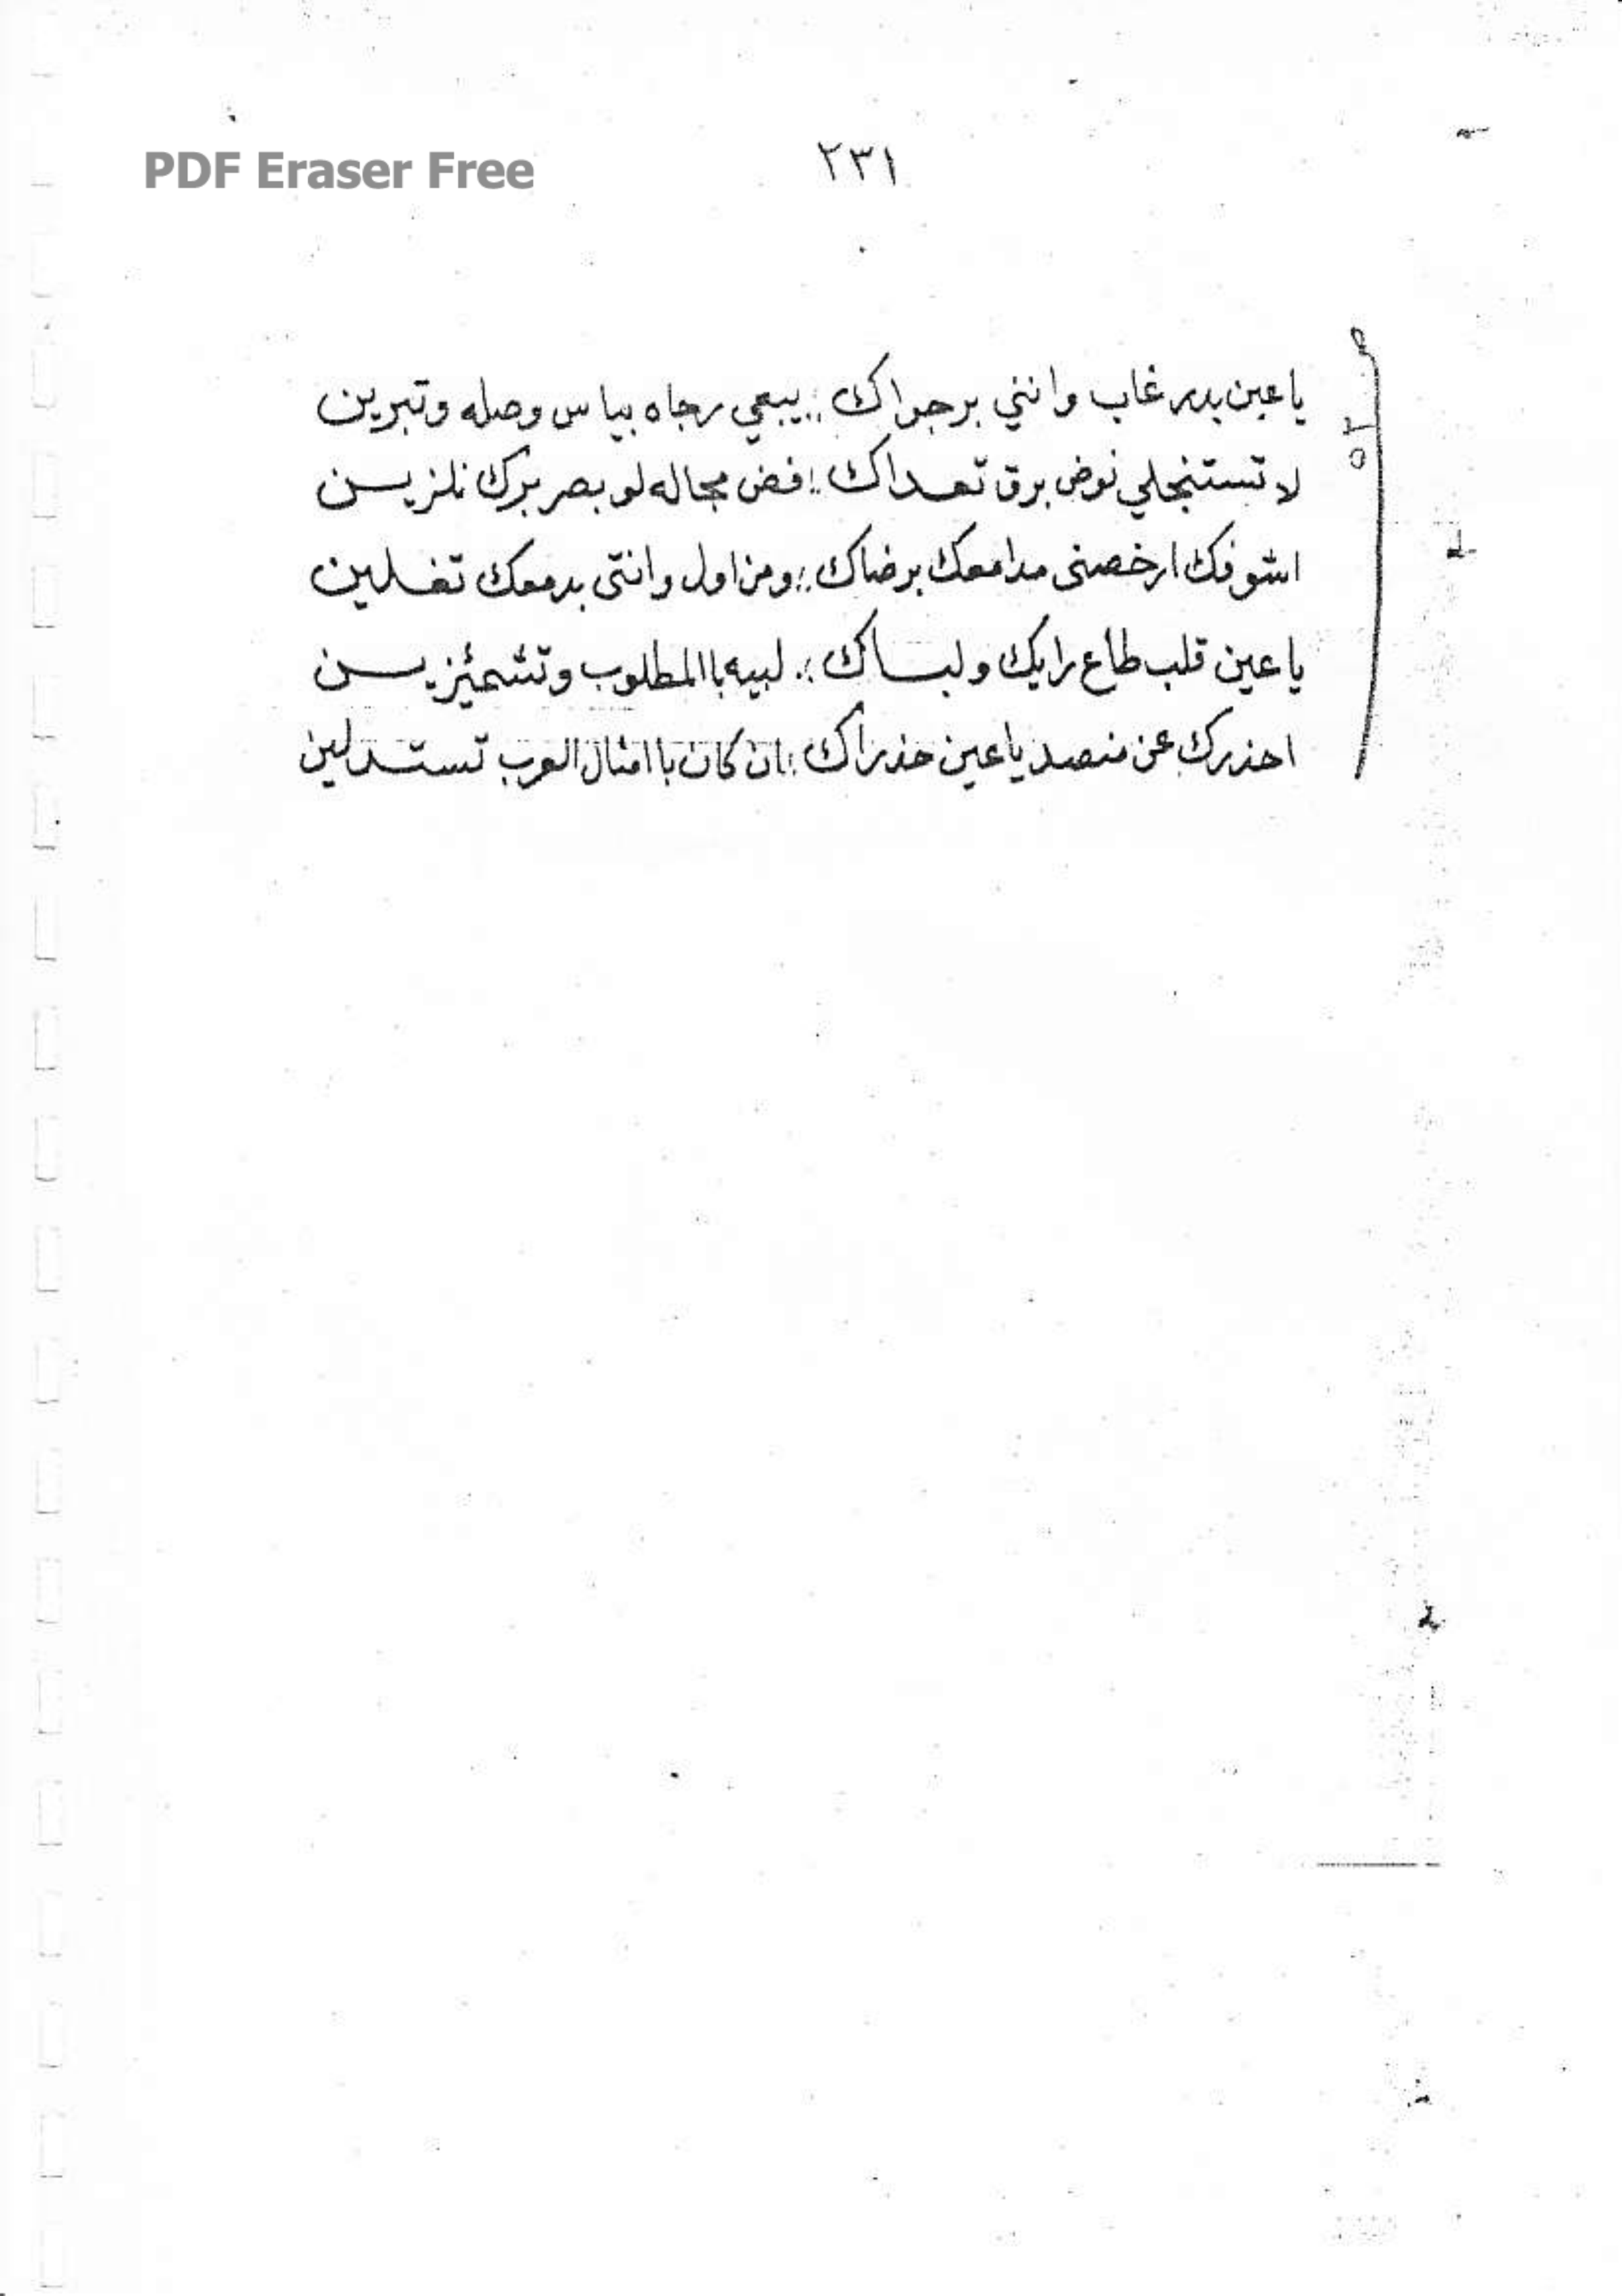 PDF Eraser Free
٢٣١
ياعين بدر غاب وانتي برجواك :: يبعي رجاه بياس وصله وتبرين
لا تستنجلي نوض برق تعداك :: افض مجاله لو بصر برك تلزين
اشوفك ارخصتى مدامعك برضاك :: ومن اول وانتى بدمعك تغلين
ياعين قلب طاع رايك ولباك :: لبيه باالمطلوب وتشمئزين
احذرك عن منصد ياعين حذراك :: ان كان باامثال العرب تستدلين